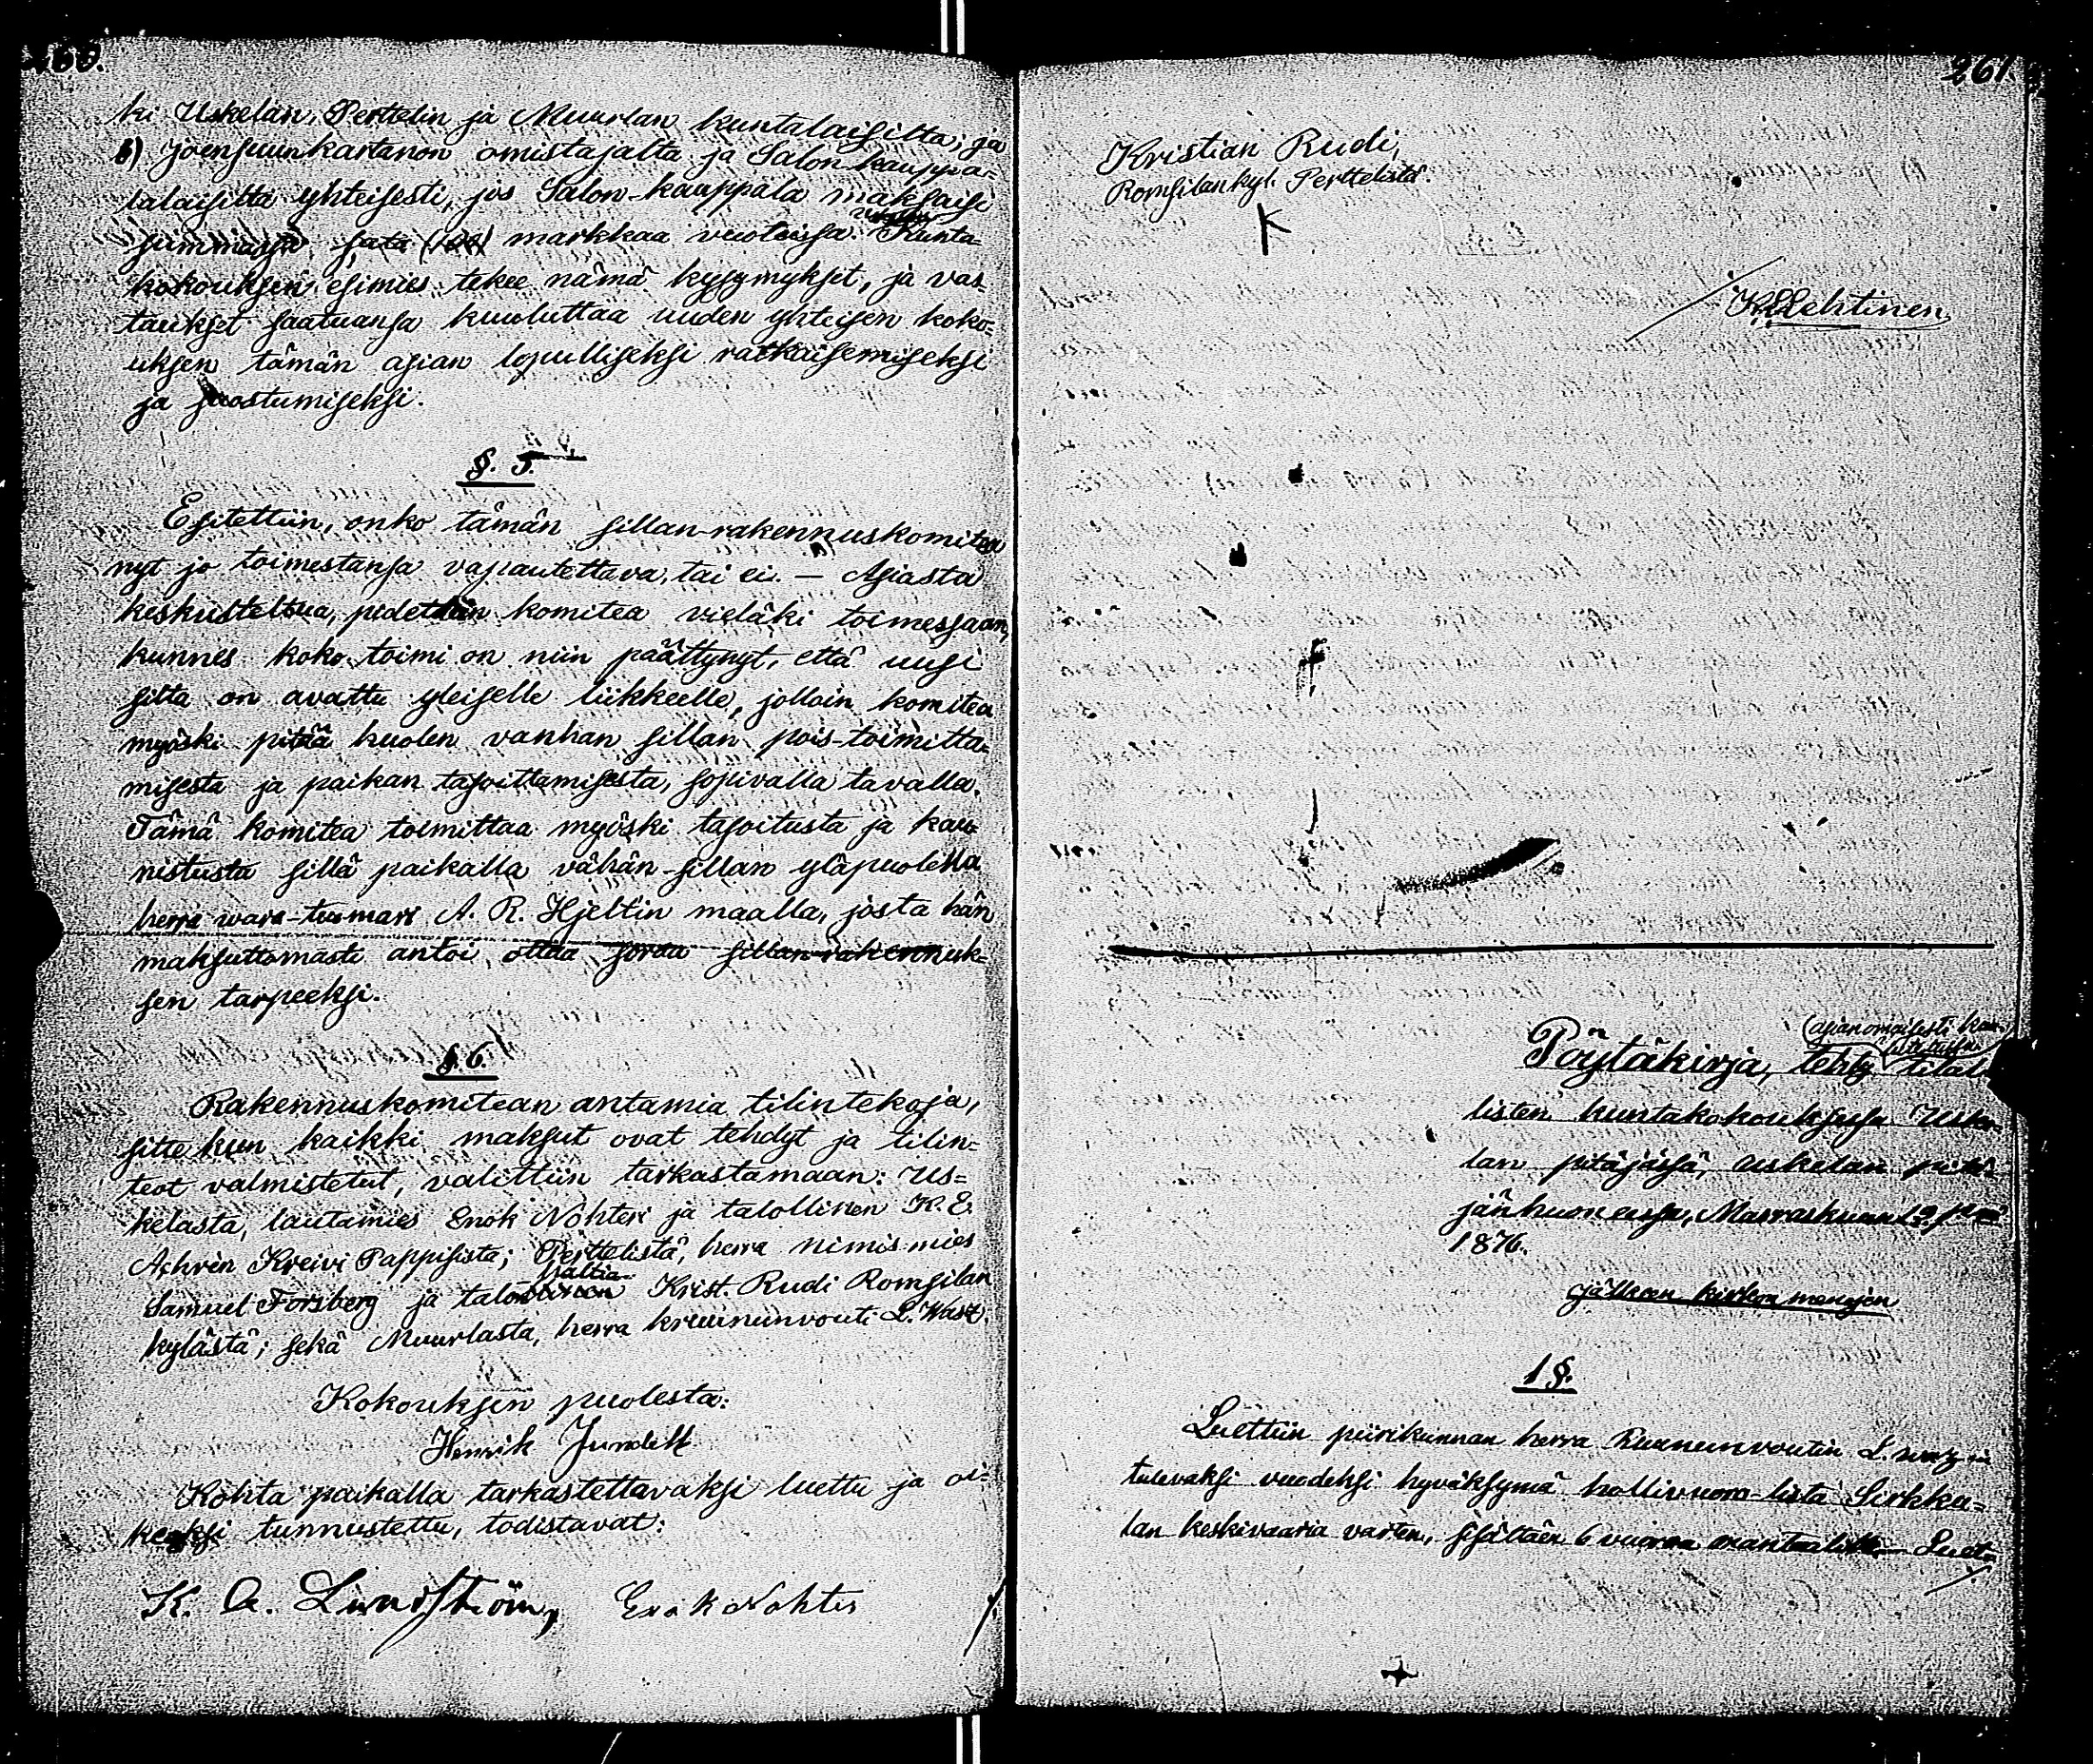 260.
ki Uskelan, Perttelin ja Muurlan kuntalaisilta; ja
b) Joensuunkartanon omistajalta ja Salon kauppa-
lalaisilta yhteisesti, jos Salon-kauppala maksaisi
summassa sata (100) markkaa vuotuisa. Kunta-
kokouksen esimies tekee nämä kysymykset, ja vas-
taukset saatuansa kuuluttaa uuden yhteisen koko-
uksen tämän asian lopulliseksi ratkaisemiseksi
ja suostumiseksi.
§. 5.
Esitettiin, onko tämän sillan-rakennuskomitea
nyt jo toimestansa vapautettava, tai ei. — Asiasta
keskusteltua, pidettiin komitea vieläki toimessaan,
kunnes koko toimi on niin päättynyt, että uusi
silta on avattu yleiselle liikkeelle, jolloin komitea
myöski pitää huolen vanhan sillan pois-toimitta-
misesta ja paikan tasoittamisesta, sopivalla tavalla.
Tämä komitea toimittaa myöski tasoitusta ja kau-
nistusta sillä paikalla vähän sillan yläpuolella
herra vara-tuomari A. R. Hjelt'in maalla, josta hän
maksuttomasti antoi ottaa soraa sillan-rakennuk-
sen tarpeeksi.
§. 6.
Rakennuskomitean antamia tilintekoja,
sitte kun kaikki maksut ovat tehdyt ja tilin-
teot valmistetut, valittiin tarkastamaan: Us-
kelasta, lautamies Enok Nohteri ja talollinen K. E.
Achrén Kreivi Pappisista; Perttelistä, herra nimismies
Samuel Forsberg ja talon haltia Krist. Rudi Romsilan
kylästä; sekä Muurlasta, herra kruununvouti L. Wasz.
Kokouksen puolesta:
Henrik Jundell
Kohta paikalla tarkastettavaksi luettu ja oi-
keaksi tunnustettu, todistavat:
K. A. Lindström, Enok Nohter
261.
Kristian Rudi,
Romsilan kyl. Perttelistä.
K
K. E. Lehtinen
(asianomaisesti kuu-
lutetussa
Pöytäkirja, tehty tilal-
listen kuntakokouksessa Uske-
lan pitäjässä, Uskelan pitä-
jänhuoneessa, Marraskuun
1876.
jälkeen kirkon menojen
1 §.
Luettiin piirikunnan herra Kruununvoutin L. Wasz'in
tulevaksi vuodeksi hyväksymä hollivuoro-lista Sirkka-
lan keskivaaria varten, sisältäen 6 vuoroa mantaalille — Luet-